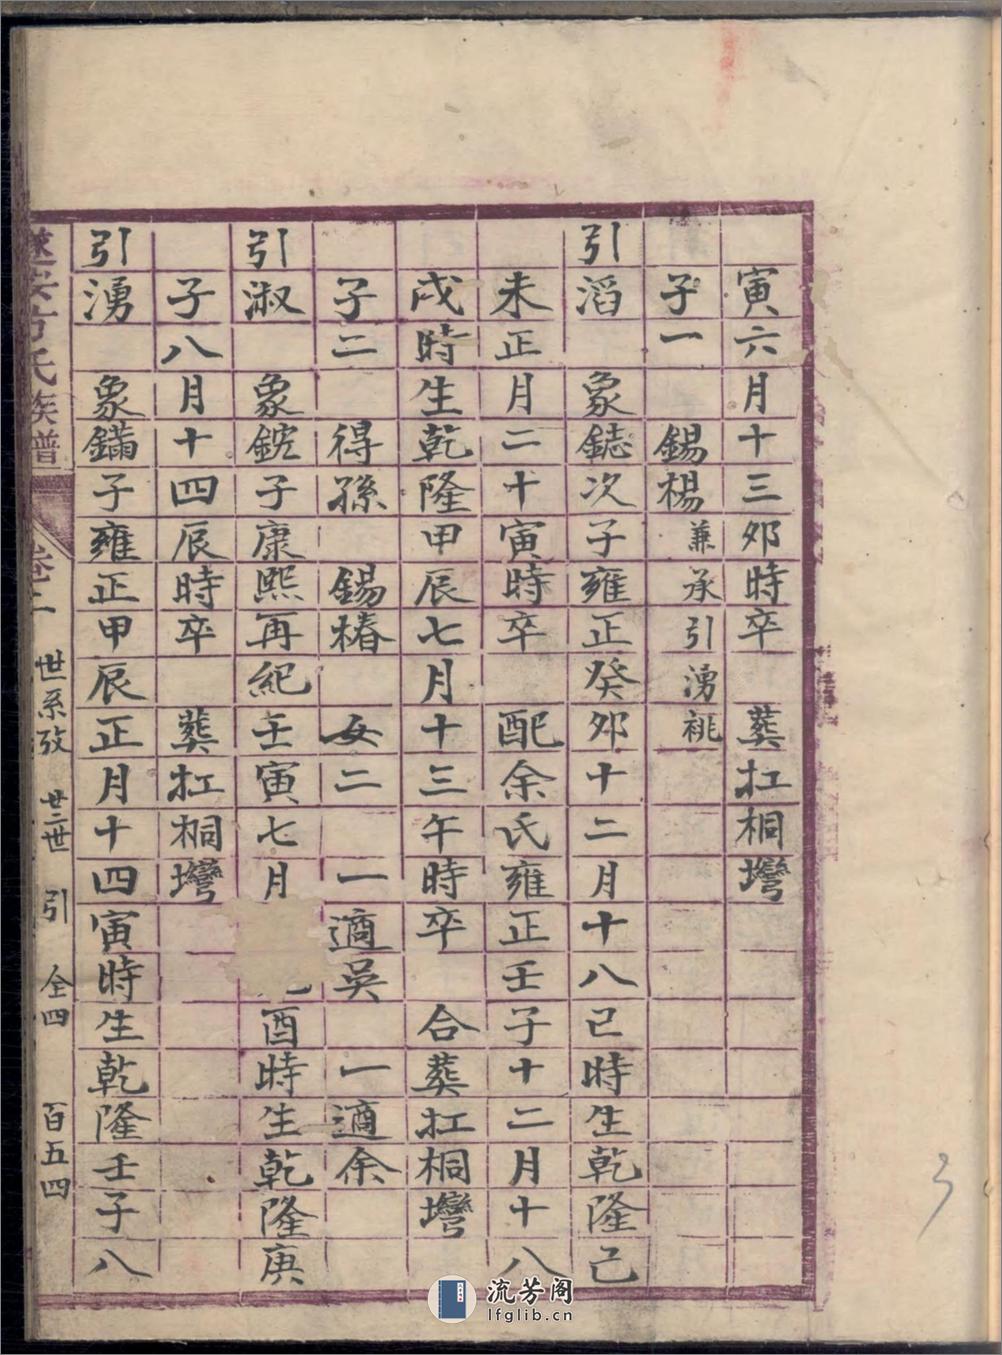 寅六月十三夘時卒 葬扛桐塆
子一 錫楊 兼承引湧祧
引滔 象鋕次子雍正癸夘十二月十八巳時生乾隆己
未正月二十寅時卒 配余氏雍正壬子十二月十八
戌時生乾隆甲辰七月十三午時卒 合葬扛桐塆
子二 得孫 錫椿 女二 一適吳 一適余
引淑 象鋎子康熙再紀壬寅七月 酉時生乾隆庚
子八月十四辰時卒 葬扛桐塆
引湧 象鏋子雍正甲辰正月十四寅時生乾隆壬子八
遂安方氏族譜 卷二 世系攷 廿二世 引 仝四 百五四
3
流芳阁
lfglib.cn